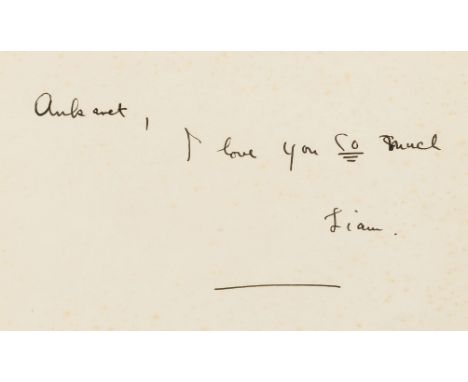 Ankaret,
I love you so much
Liam.